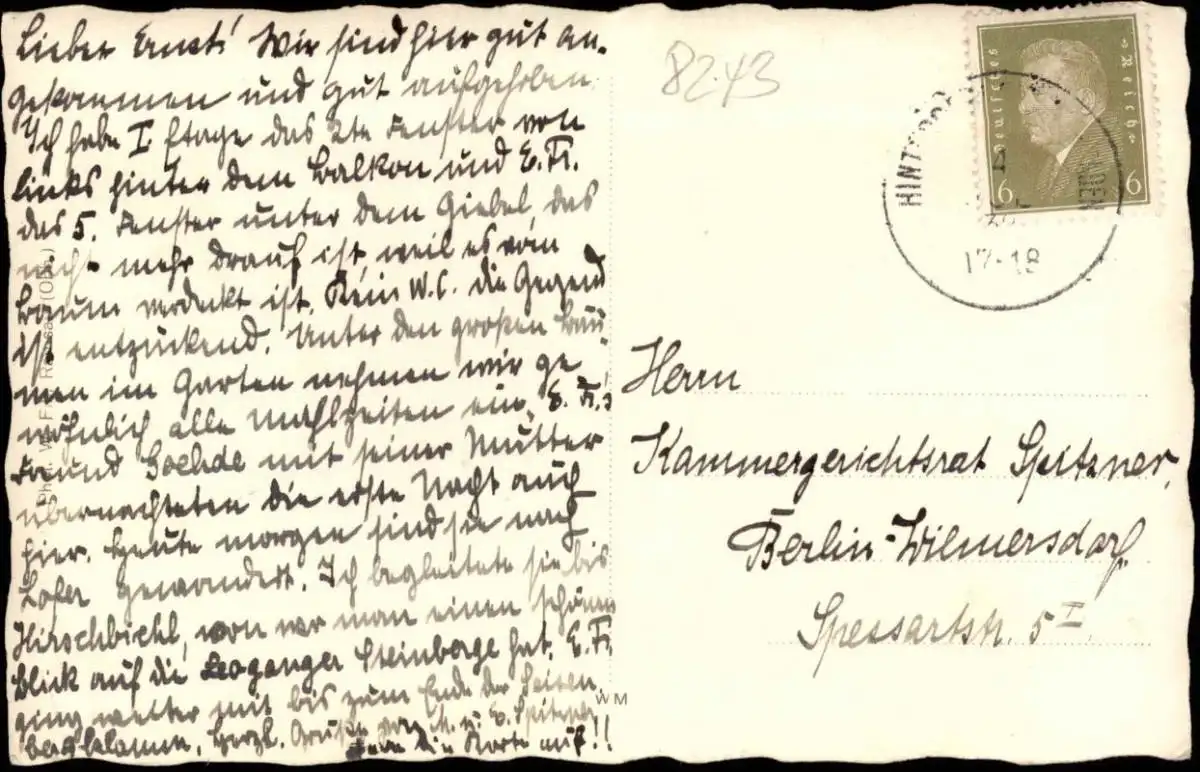 Lieber Ernst! Wir sind hier gut an-
gekommen und gut aufgehoben
Ich habe I. Etage das 2te Fenster von
links hinter dem Balkon und E. Fr.
das 5. Fenster unter dem Giebel, das
nicht mehr drauf ist, weil es vom
Baum verdeckt ist. Kein W.C. die Gegend
ist entzückend. Unter den großen Bäu-
men im Garten nehmen wir ge
wöhnlich alle Mahlzeiten ein. E. Fr.s
Freund mit seiner Mutter
übernachteten die erste Nacht auch
hier. Heute morgen sind sie nach
Lofer gewandert. Ich begleitete sie bis
Hirschbichl, von wo man einen schönen
Blick auf die Leoganger Steinberge hat. E. Fr.
ging weiter mit bis zum Ende der Seisen
bergklamm. Herzl. Grüße von M. u. E. Spitzner
die Karte auf!!
8243
Deutsches Reich
6 6
HINT
17-18
Herrn
Kammergerichtsrat Spitzner,
Berlin-Wilmersdorf.
Spessartstr. 5 I
WM